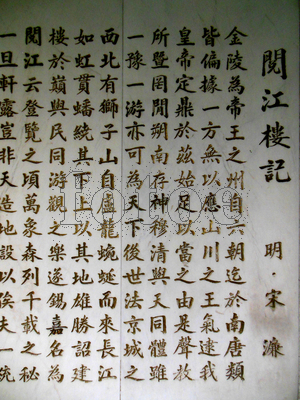 閱江樓記 明·宋濂
金陵為帝王之州自六朝迄於南唐類
皆偏據一方無以應山川之王氣逮我
皇帝定鼎於茲始足以當之由是聲教
所暨罔間朔南存神穆清與天同體雖
一豫一游亦可為天下後世法京城之
西北有獅子山自盧龍蜿蜒而來長江
如虹貫蟠繞其下上以其地雄勝詔建
樓於巔與民同游觀之樂遂錫嘉名為
閱江云登覽之頃萬象森列千載之秘
一旦軒露豈非天造地設以俟大一統